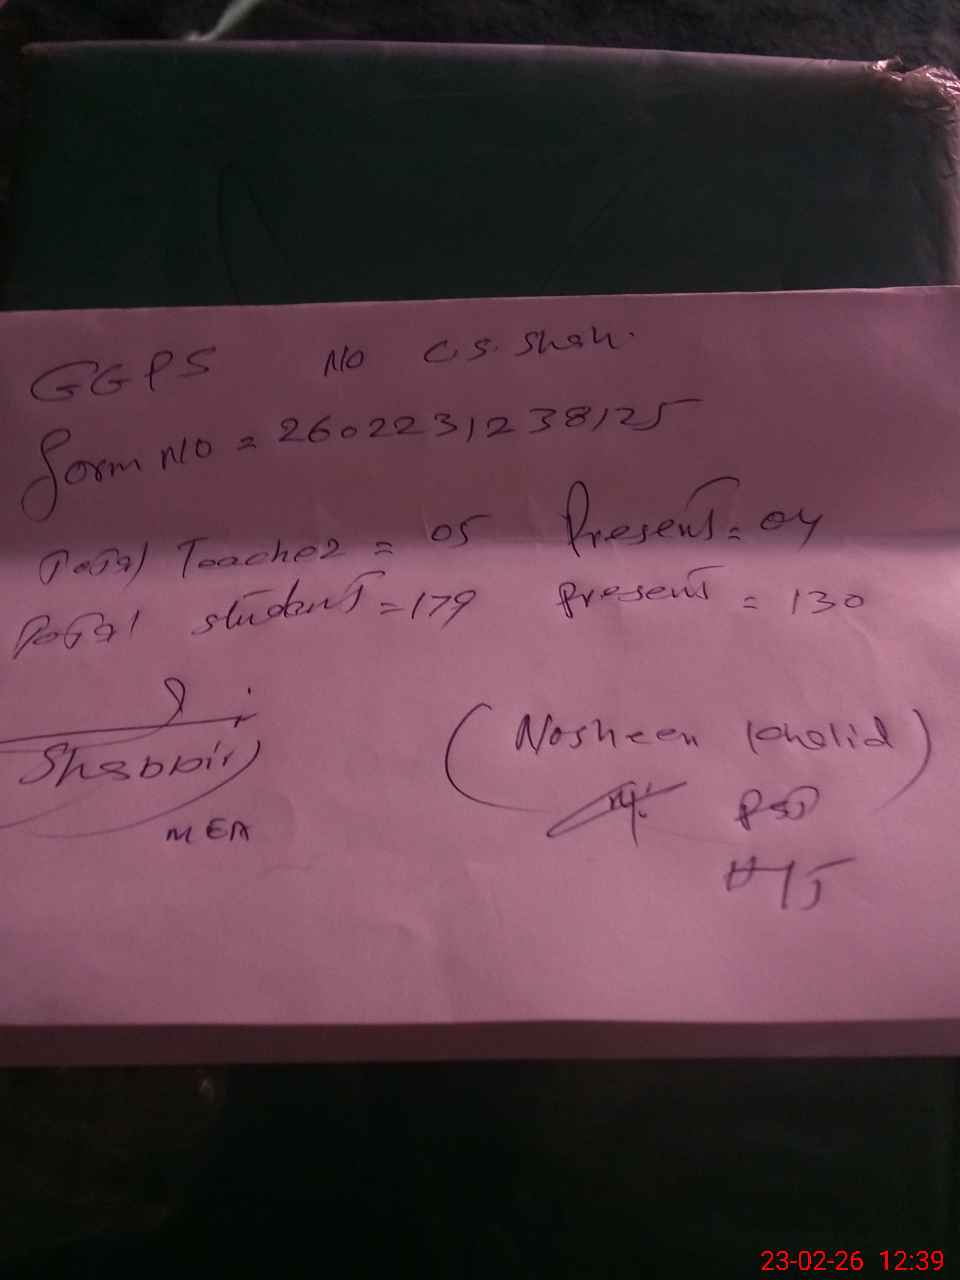 GGPS No C.S. Shah.
form No = 2602231238125
Total Teacher = 05 Present = 04
Total student = 179 present = 130
Shabbir
MEA
(Nosheen Khalid)
PST
23-02-26 12:39